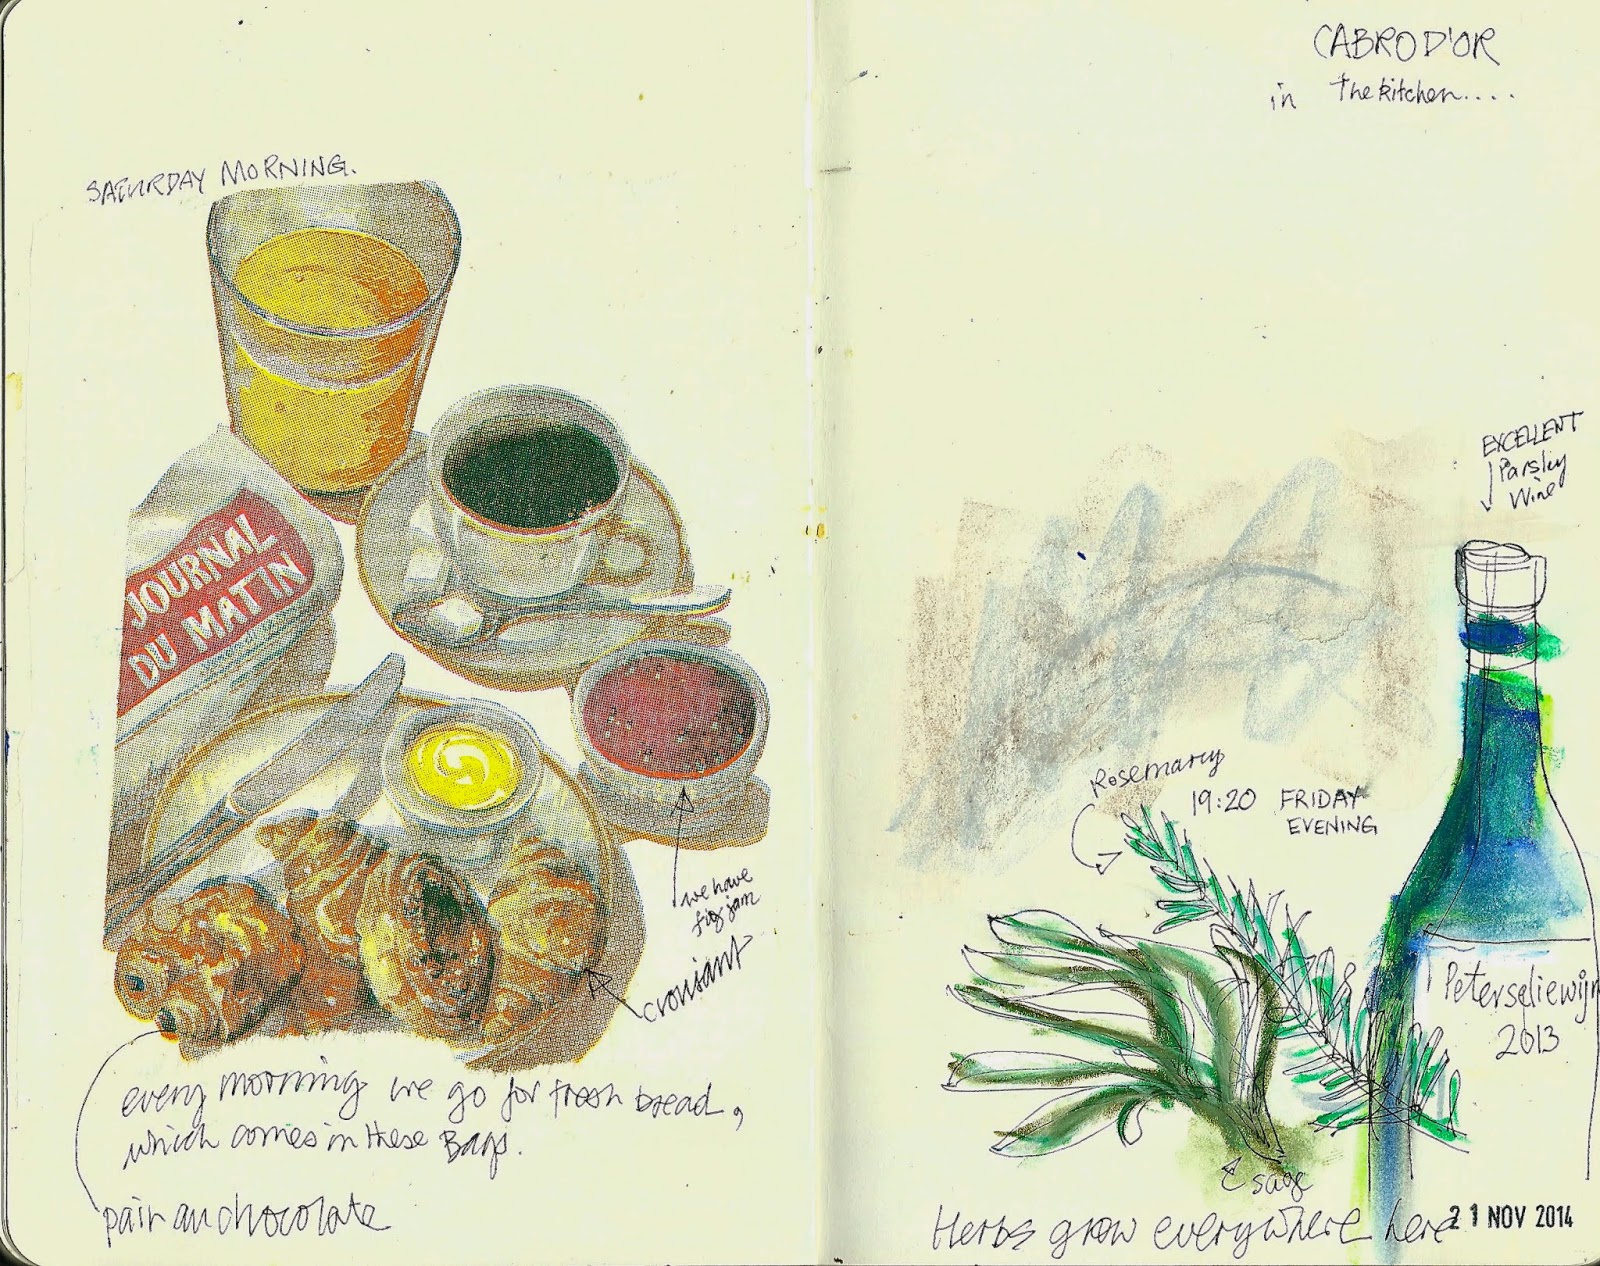 SATURDAY MORNING.
JOURNAL
DU MATIN
we have
fig jam
croniant
every morning we go for fresh bread,
which comes in these Bags.
pain au chocolate
CABROD'OR
in the kitchen....
EXCELLENT
Parsley
Wine
Rosemary
19:20 FRIDAY
EVENING
Peterseliewijn
2013
sage
Herbs grow everywhere here
21 NOV 2014